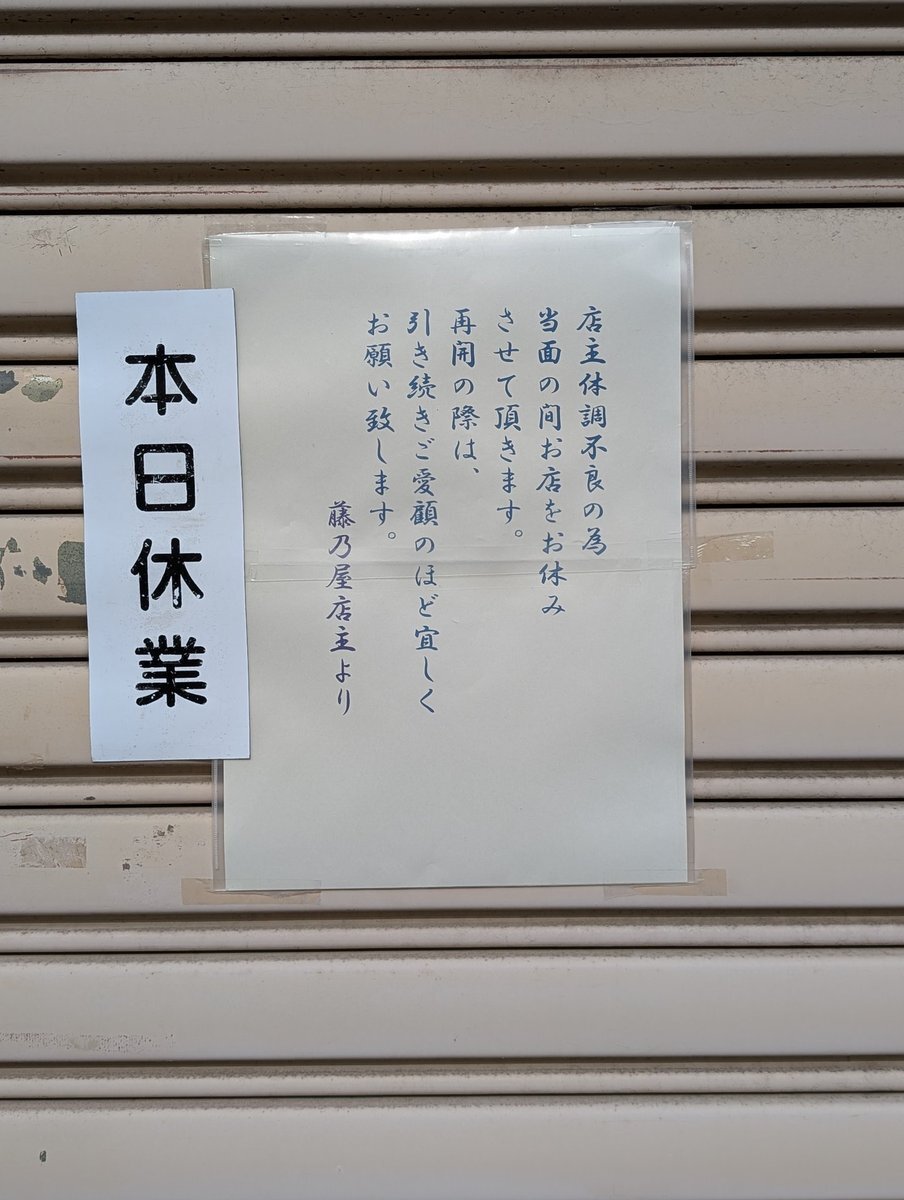 店主体調不良の為
当面の间お店をお休み
させて頂きます。
再開の際は、
引き続きご愛顧のほど宜しく
お願い致します。
藤乃屋店主より
本日休業